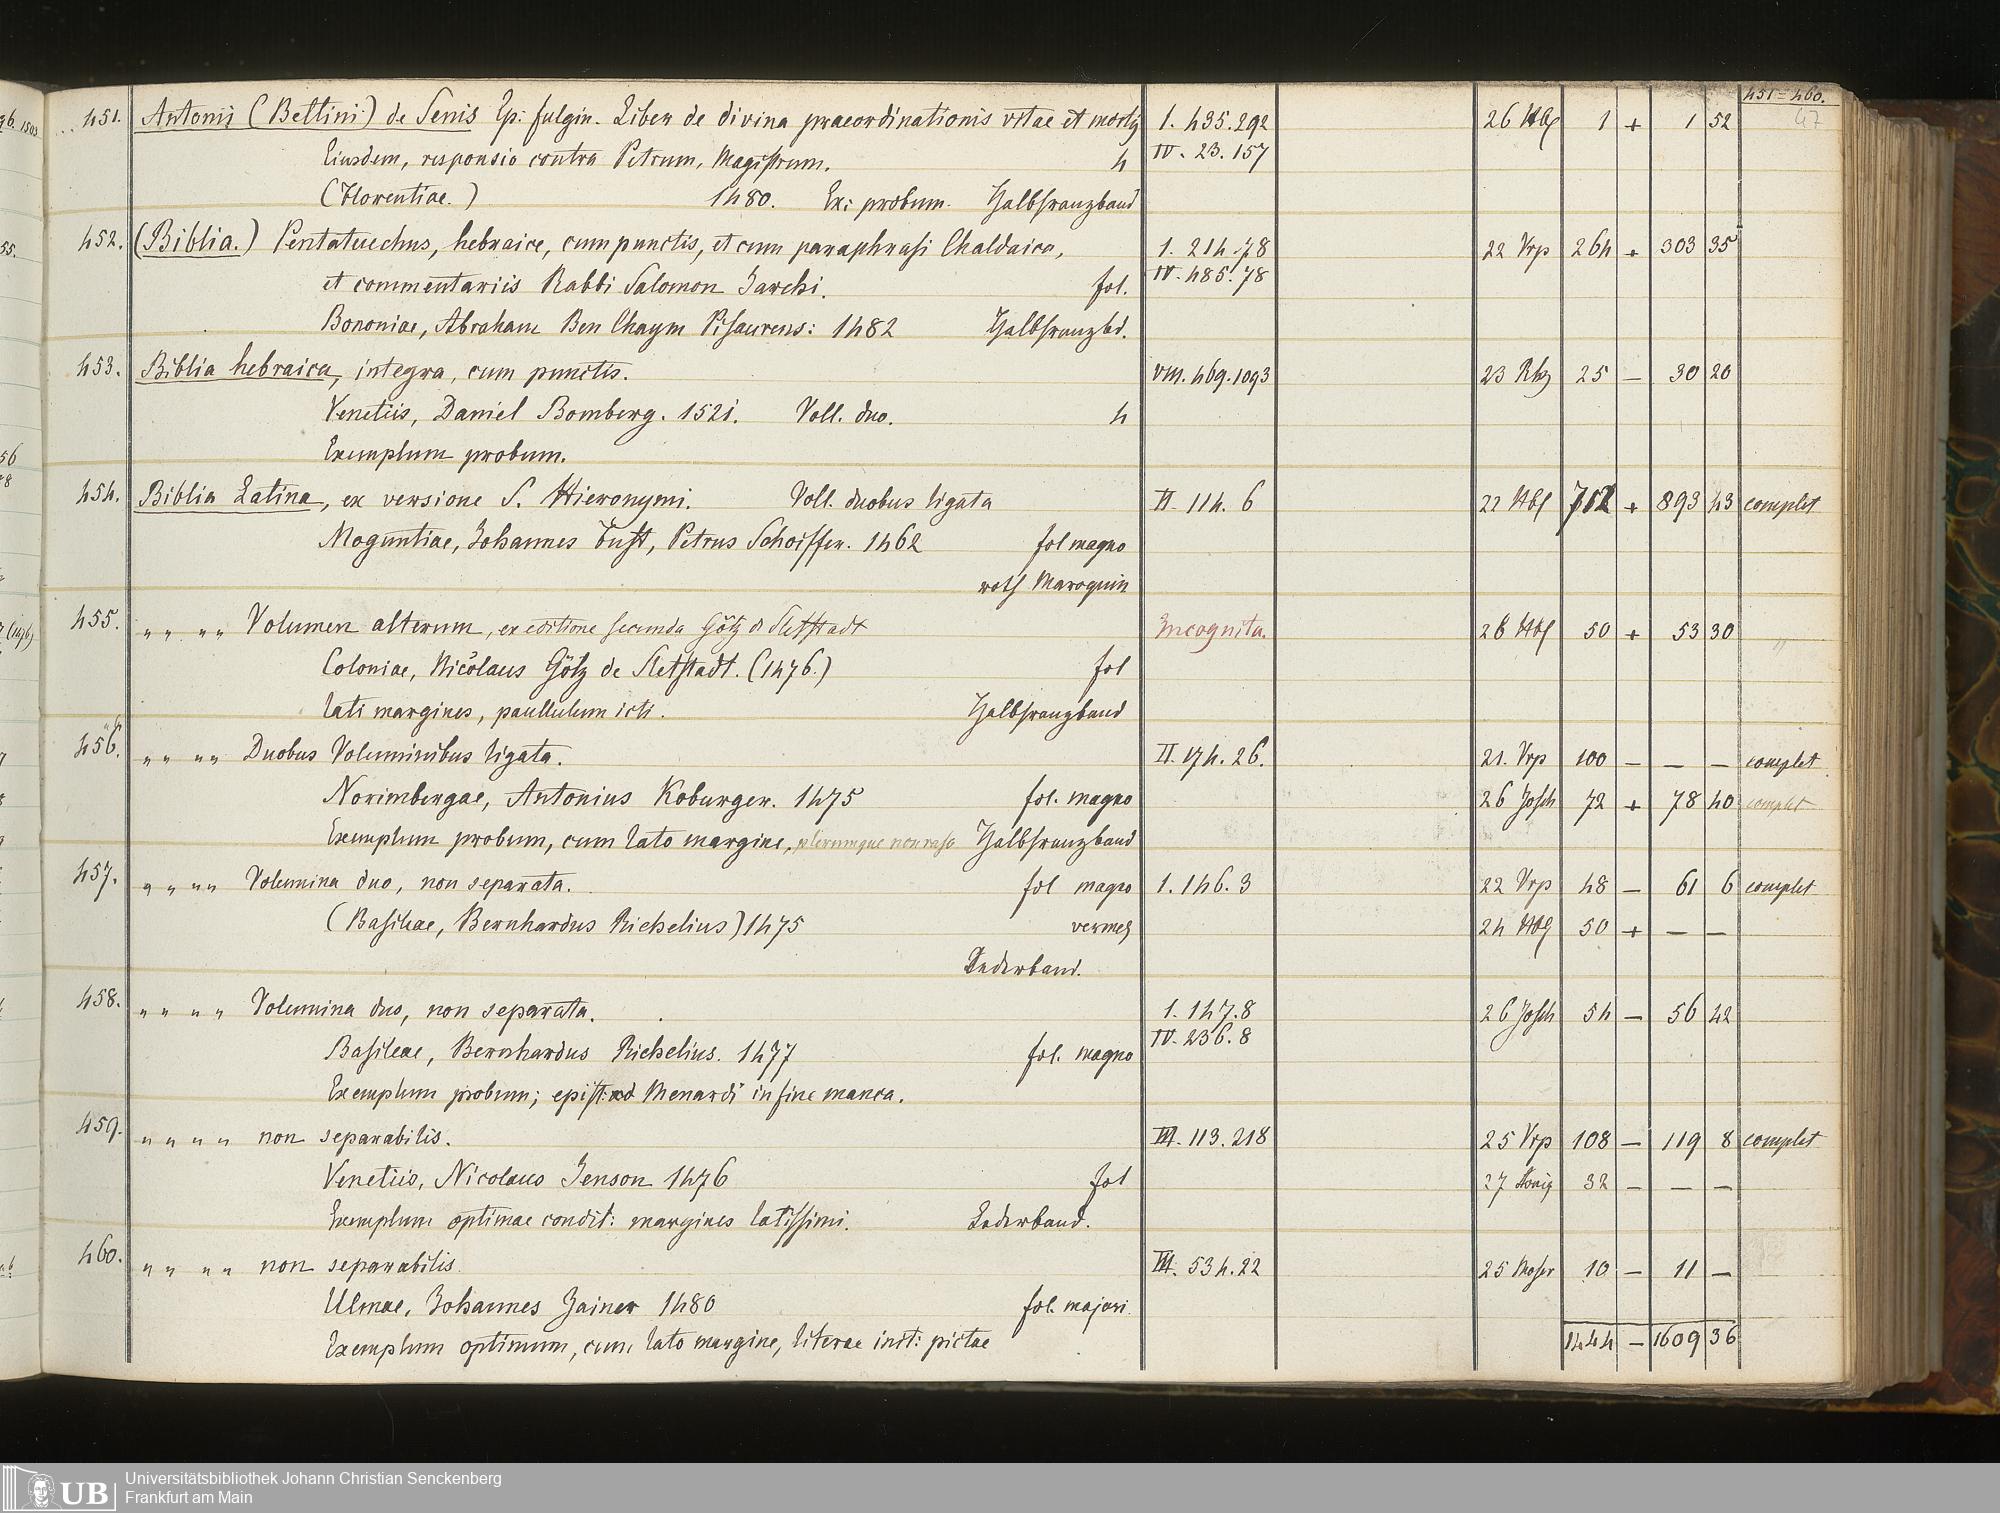 451 = 460.
47
451. Antonii (Bettini) de Senis Ep: fulgin. Liber de divina praeordinationis vitae et mortis 1. 435.292 26 Hbg 1 + 1 52
Eiusdem, responsio contra Petrum, Magistrum. 4 IV. 23. 157
(Florentiae.) 1480. Ex: probum. Halbfranzband
452. (Biblia.) Pentateuchus, hebraice, cum punctis, et cum paraphrasi Chaldaica, 1. 214.78 22 Vrp 264 + 303 35
et commentariis Rabbi Salomon Jarchi. fol. IV. 485. 78
Bononiae, Abraham Ben Chaym Pisaurens: 1482 Halbfranzbd.
453. Biblia hebraica, integra, cum punctis. VIII. 469.1093 23 25 — 30 20
Venetiis, Daniel Bomberg. 1521. Voll. duo. 4
Exemplum probum.
454. Biblia Latina, ex versione S. Hieronymi. Voll. duobus ligata II. 114. 6 22 Hbg 712 + 893 43 complet
Moguntiae, Johannes Fust, Petrus Schoiffer. 1462 fol magno
roth Maroquin
455. " " " " Volumen alterum, ex editione secunda Götz d Sletstadt Incognita. 28 Hbg 50 + 53 30 "
Coloniae, Nicolaus Götz de Sletstadt. (1476.) fol
lati margines, paullulum icti. Halbfranzband
456. " " " " Duobus Voluminibus ligata. II. 174. 26. 21. Vrp 100 — — — complet
Norimbergae, Antonius Koburger. 1475 fol. magno 26 Josch 72 + 78 40 complet
Exemplum probum, cum lato margine, plerumque non raso Halbfranzband
457. " " " " Volumina duo, non separata. fol magno 1. 146. 3 22 Vrp 48 — 61 6 complet
(Basileae, Bernhardus Richelius) 1475 24 Hbg 50 + — —
Lederband.
458. " " " " Volumina duo, non separata. 1. 147.8 26 Josch 54 — 56 42
Basileae, Bernhardus Richelius. 1477 fol. magno IV. 236.8
Exemplum probum; epist: ad Menardi in fine manca.
459. " " " " non separabilis. III. 113. 218 25 Vrp 108 — 119 8 complet
Venetiis, Nicolaus Jenson 1476 fol 27 König 32 — — —
Exemplum optimae condit: margines latissimi. Lederband.
460. " " " " non separabilis. III. 534. 22 25 Moser 10 — 11 —
Ulmae, Johannes Zainer 1480 fol. majori
Exemplum optimum, cum lato margine, literae init: pictae 1444 — 1609 36
UB Universitätsbibliothek Johann Christian Senckenberg
Frankfurt am Main